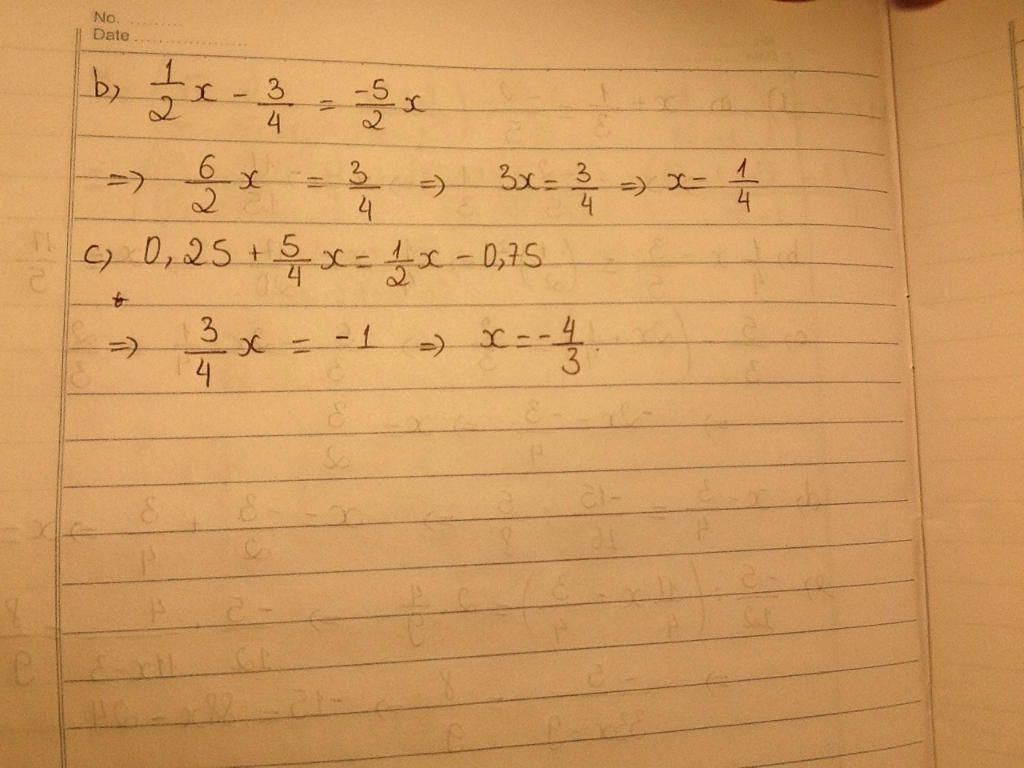 No. ..........
Date ......................
b) 1/2 x - 3/4 = -5/2 x
=> 6/2 x = 3/4 => 3x = 3/4 => x = 1/4
c) 0,25 + 5/4 x = 1/2 x - 0,75
=> 3/4 x = -1 => x = -4/3.